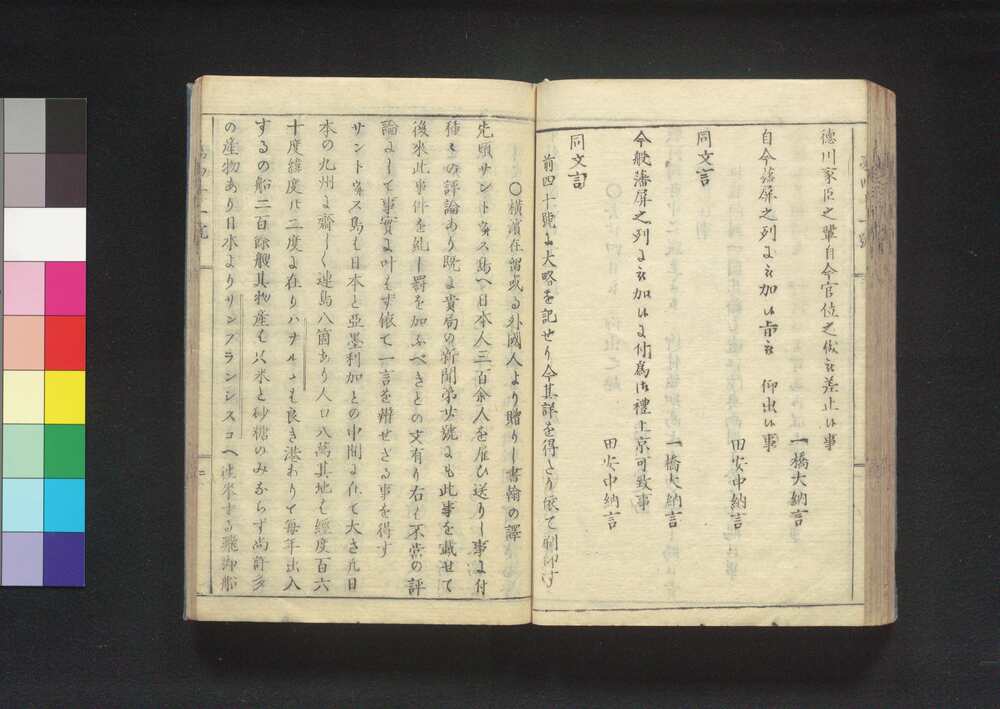 徳川家臣之輩自今官位之儀被差止候事
一橋大納言
自今藩屏之列ニ被加候旨被 仰出候事
田安中納言
同文言
一橋大納言
今般藩屏之列ニ被加候ニ付為御禮上京可致事
田安中納言
同文言
前四十號に大略を記せり今其詳を得たり依て
〇横濱在留或る外國人より贈りし書翰の譯
先頭サントウ井ス島へ日本人三百余人を雇ひ送りし事に付
種々の評論あり既に貴局の新聞第廿號にも此事を載せて
後来此事件を糺し罸を加ふべきとの文有り右ハ不當の評
論にして事實に叶ハず依て一言を辨せざる事を得す
サントウ井ス島ハ日本と亞墨利加との中間に在て大さ凡日
本の九州に齊しく連島八箇あり人口八萬其地ハ經度百六
十度緯度廿二度に在りハナルヽも良き港ありて毎年出入
するの船二百餘艘其物産ハ只米と砂糖のみならず尚許多
の産物あり日本よりサンフランシスコへ往来する飛脚船